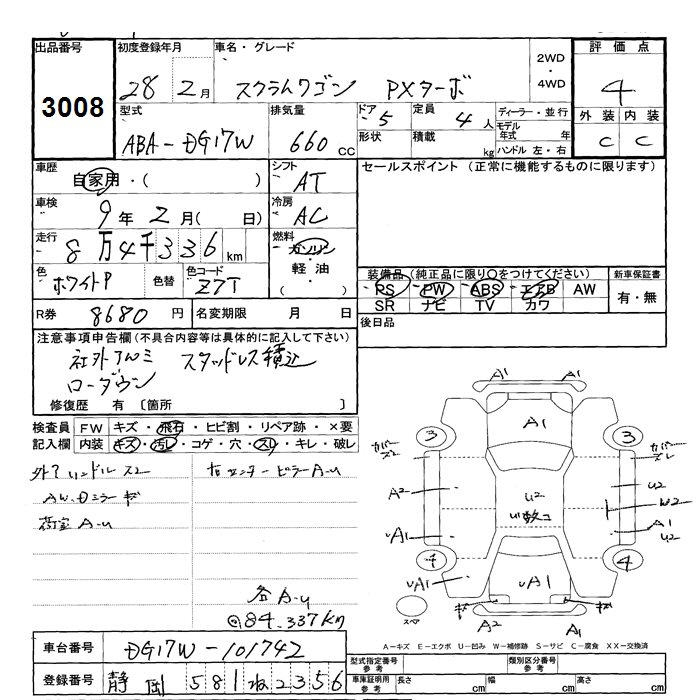 出品番号 初度登録年月 車名・グレード 2WD・4WD 評価点
3008 28 2月 スクラムワゴン PXターボ 4
型式 排気量 ドア 定員 ディーラー・並行 外装 内装
ABA-DG17W 660cc 5 4人 モデル年式 年 C C
形状 積載 kg ハンドル 左・右
車歴 シフト セールスポイント (正常に機能するものに限ります)
自家用・( ) AT
車検 冷房
9年2月( 日) AC
走行 燃料
8万4千336km ガソリン・軽油 ( )
色 色替 色コード 装備品 (純正品に限り○をつけてください) 新車保証書
ホワイトP Z7T PS PW ABS エアB AW 有・無
SR ナビ TV カワ
R券 8680円 名変期限 月 日 後日品
注意事項申告欄(不具合内容等は具体的に記入して下さい)
社外アルミ スタッドレス積込
ローダウン
修復歴 有 〔箇所 〕
検査員 FW キズ・飛石・ヒビ割・リペア跡・×要
記入欄 内装 キズ・汚レ・コゲ・穴・スリ・キレ・破レ
ハンドルスレ 右センターピラーA-U
AW.Dミラーキズ
荷室A-U
各A-U
84,337km
A1 A1
A1
3 3
カバースレ カバースレ
A2 U2 U2
W2
U数コ
UA1 A1 U2
4 4
UA1 UA1
キズ キズ
スペア A2 A1
A-キズ E-エクボ U-凹み W-補修跡 S-サビ C-腐食 XX-交換済
車台番号 DG17W-101742
登録番号 静岡 581 ね 2356
型式指定番号 参考 類別区分番号 参考
車庫証明用 参考 長さ cm 幅 cm 高さ cm